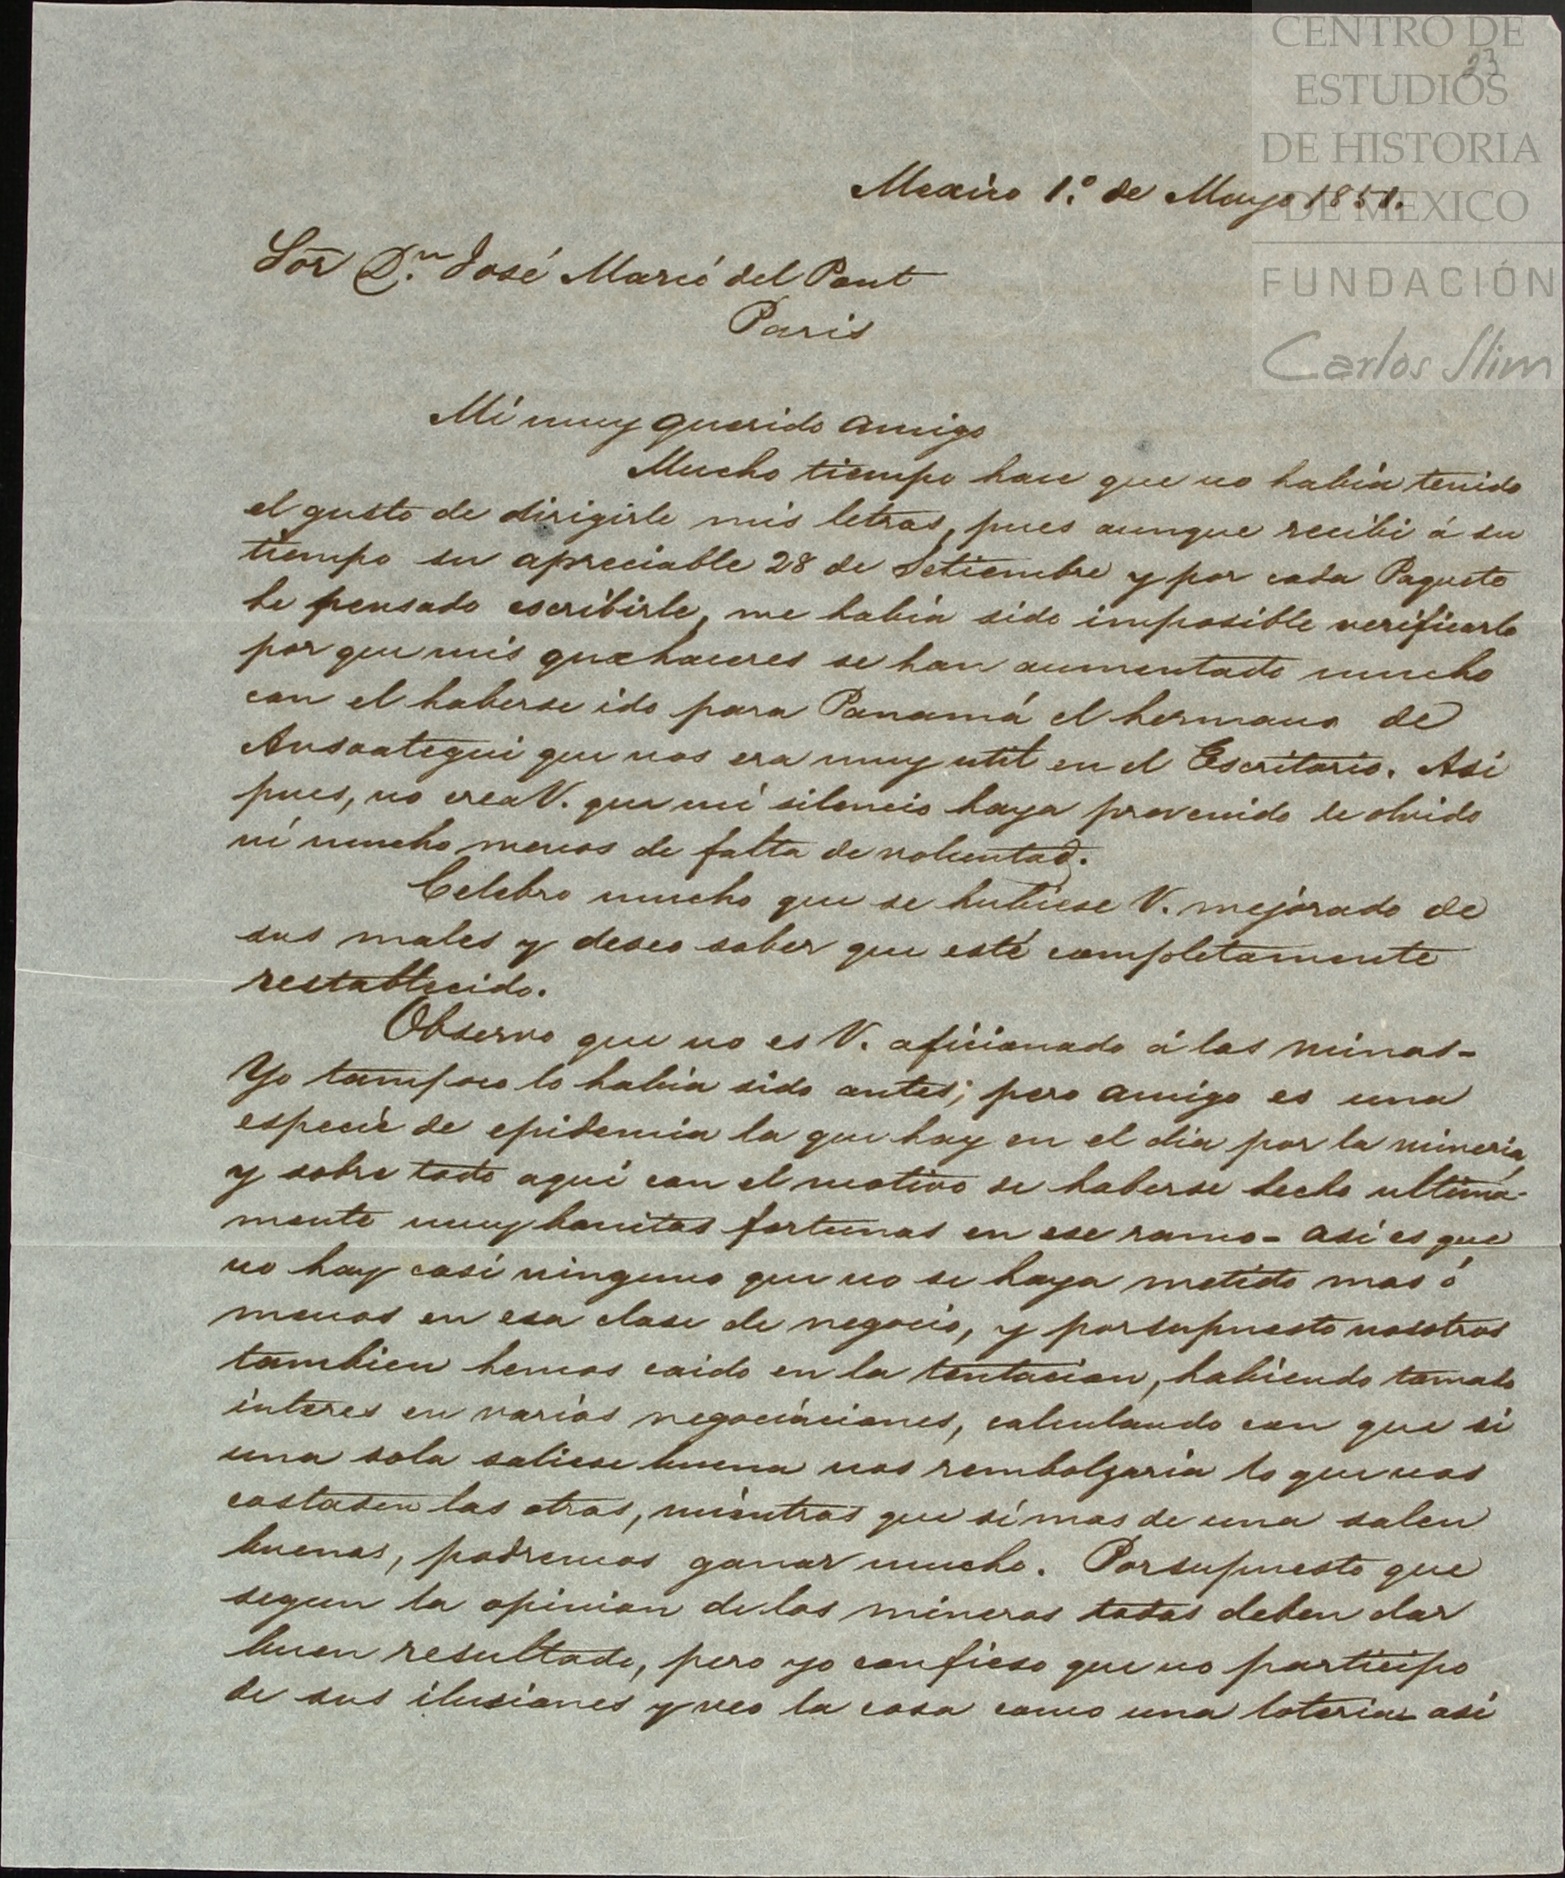 CENTRO DE
23
ESTUDIOS
DE HISTORIA
DE MEXICO
FUNDACIÓN
Carlos Slim
Mexico 1.º de Mayo 1851.
Sor D.n José Marcó del Pont
Paris
Mi muy querido amigo
Mucho tiempo hace que no habia tenido
el gusto de dirigirle mis letras, pues aunque recibi á su
tiempo su apreciable 28 de Setiembre y por cada Paquete
he pensado escribirle, me habia sido imposible verificarlo
por que mis quehaceres se han aumentado mucho
con el haberse ido para Panamá el hermano de
Ansoategui que nos era muy util en el Escritorio. Asi
pues, no crea V. que mi silencio haya provenido de olvido
ni mucho menos de falta de voluntad.
Celebro mucho que se hubiese V. mejorado de
sus males y deseo saber que esté completamente
restablecido.
Observo que no es V. aficionado á las minas-
Yo tampoco lo habia sido antes; pero amigo es una
especie de epidemia la que hay en el dia por la mineria,
y sobre todo aqui con el motivo de haberse hecho ultima-
mente muy bonitas fortunas en ese ramo- asi es que
no hay casi ninguno que no se haya metido mas ó
menos en esa clase de negocio, y porsupuesto nosotros
tambien hemos caido en la tentacion, habiendo tomado
interes en varias negociaciones, calculando con que si
una sola saliese buena nos rembolzaria lo que nos
costasen las otras, mientras que si mas de una salen
buenas, podremos ganar mucho. Porsupuesto que
segun la opinion de los mineros todas deben dar
buen resultado, pero yo confieso que no participo
de sus ilusiones y veo la cosa como una loteria- asi